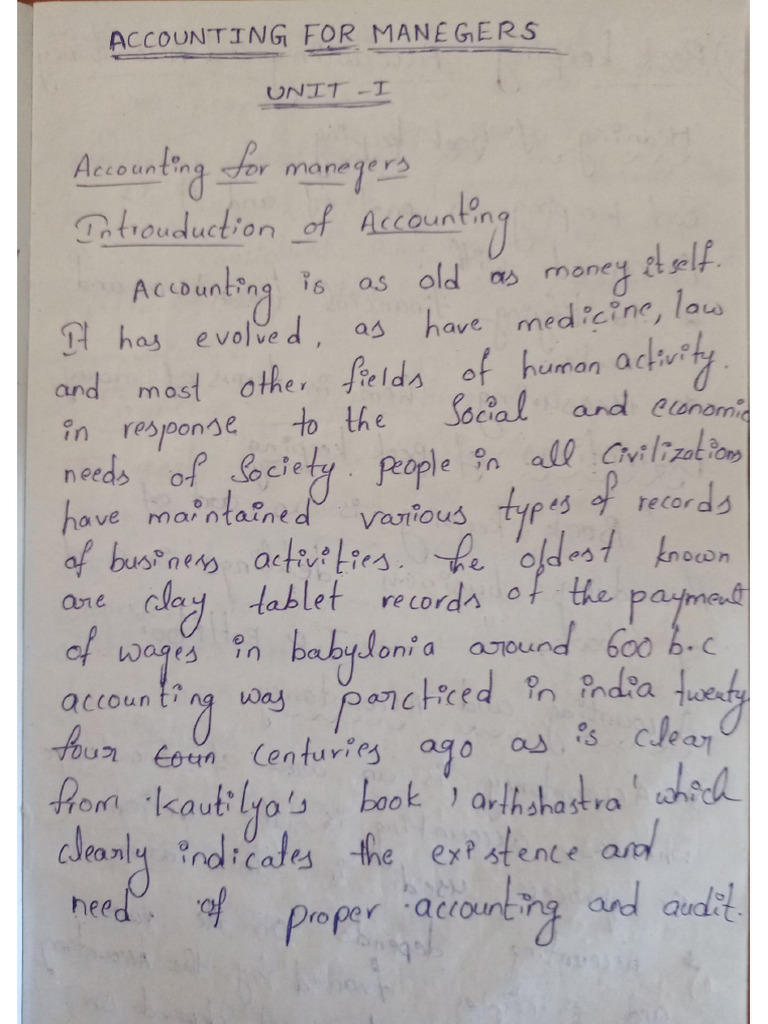 ACCOUNTING FOR MANEGERS
UNIT - I
Accounting for manegers
Introuduction of Accounting
Accounting is as old as money itself.
It has evolved, as have medicine, low
and most other fields of human activity.
in response to the Social and economic
needs of Society. people in all Civilizations
have maintained various types of records
of business activities. The oldest known
are clay tablet records of the payment
of wages in babylonia around 600 b.c
accounting was parcticed in india twenty
four centuries ago as is clear
from Kautilya's book 'arthshastra' which
clearly indicates the existence and
need of proper accounting and audit.